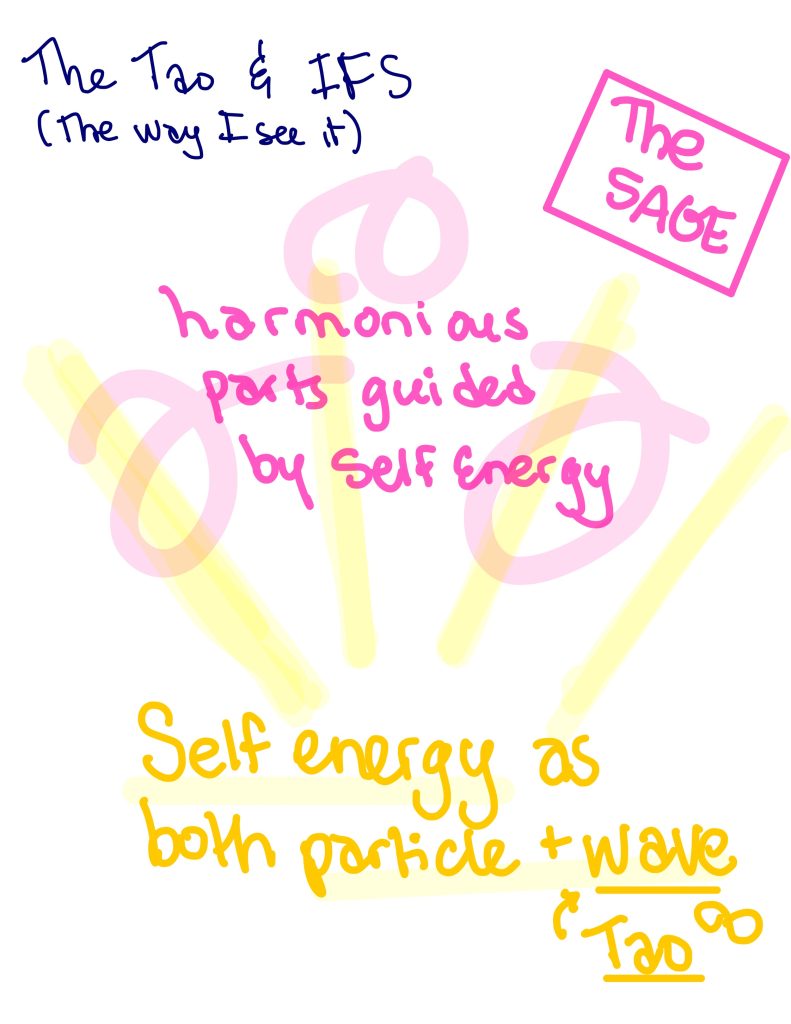 The Tao & IFS
(The way I see it)
The
SAGE
harmonious
parts guided
by Self Energy
Self energy as
both particle + wave
Tao ∞